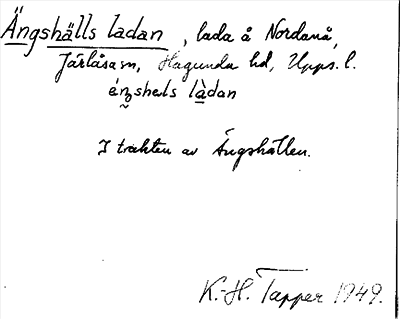 Ängshälls ladan, lada å Nordanå,
Järlåsa sn, Hagunda hd, Upps. l.
ladan
I trakten av Ängshällen.
K.-H. Tapper 1949.